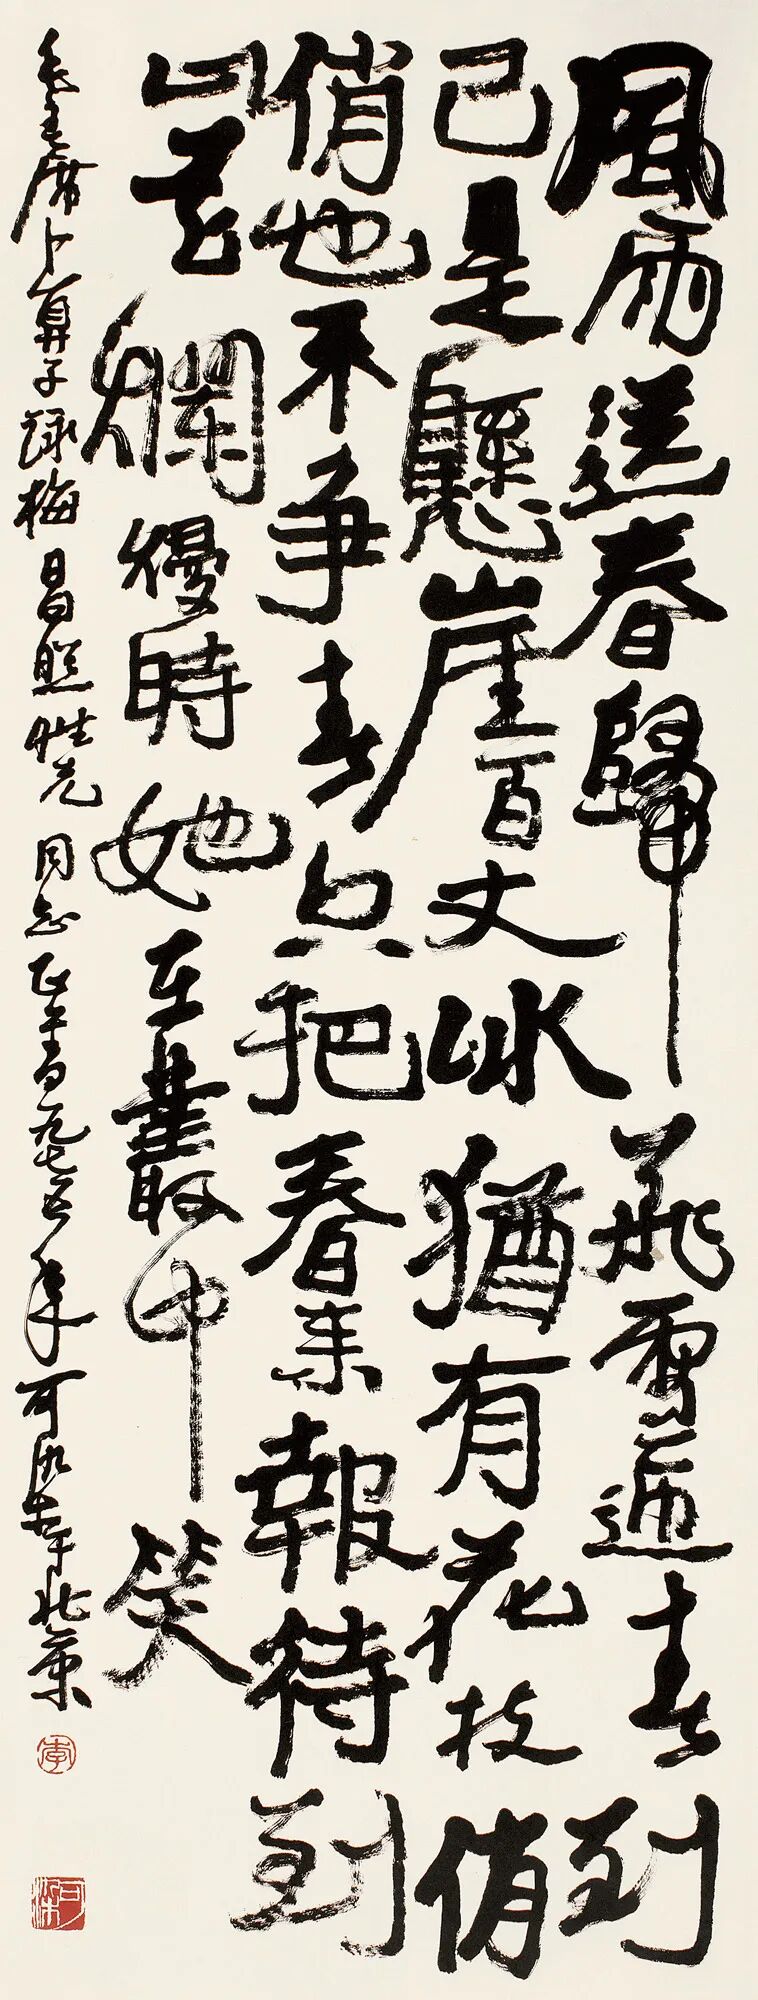 風雨送春歸飛雪迎春到
已是懸崖百丈冰猶有花枝俏
俏也不争春只把春來報待到
山花爛熳時她在叢中笑
毛主席卜算子詠梅 昌照 同志 一九七五年 可染 北京
李
可染